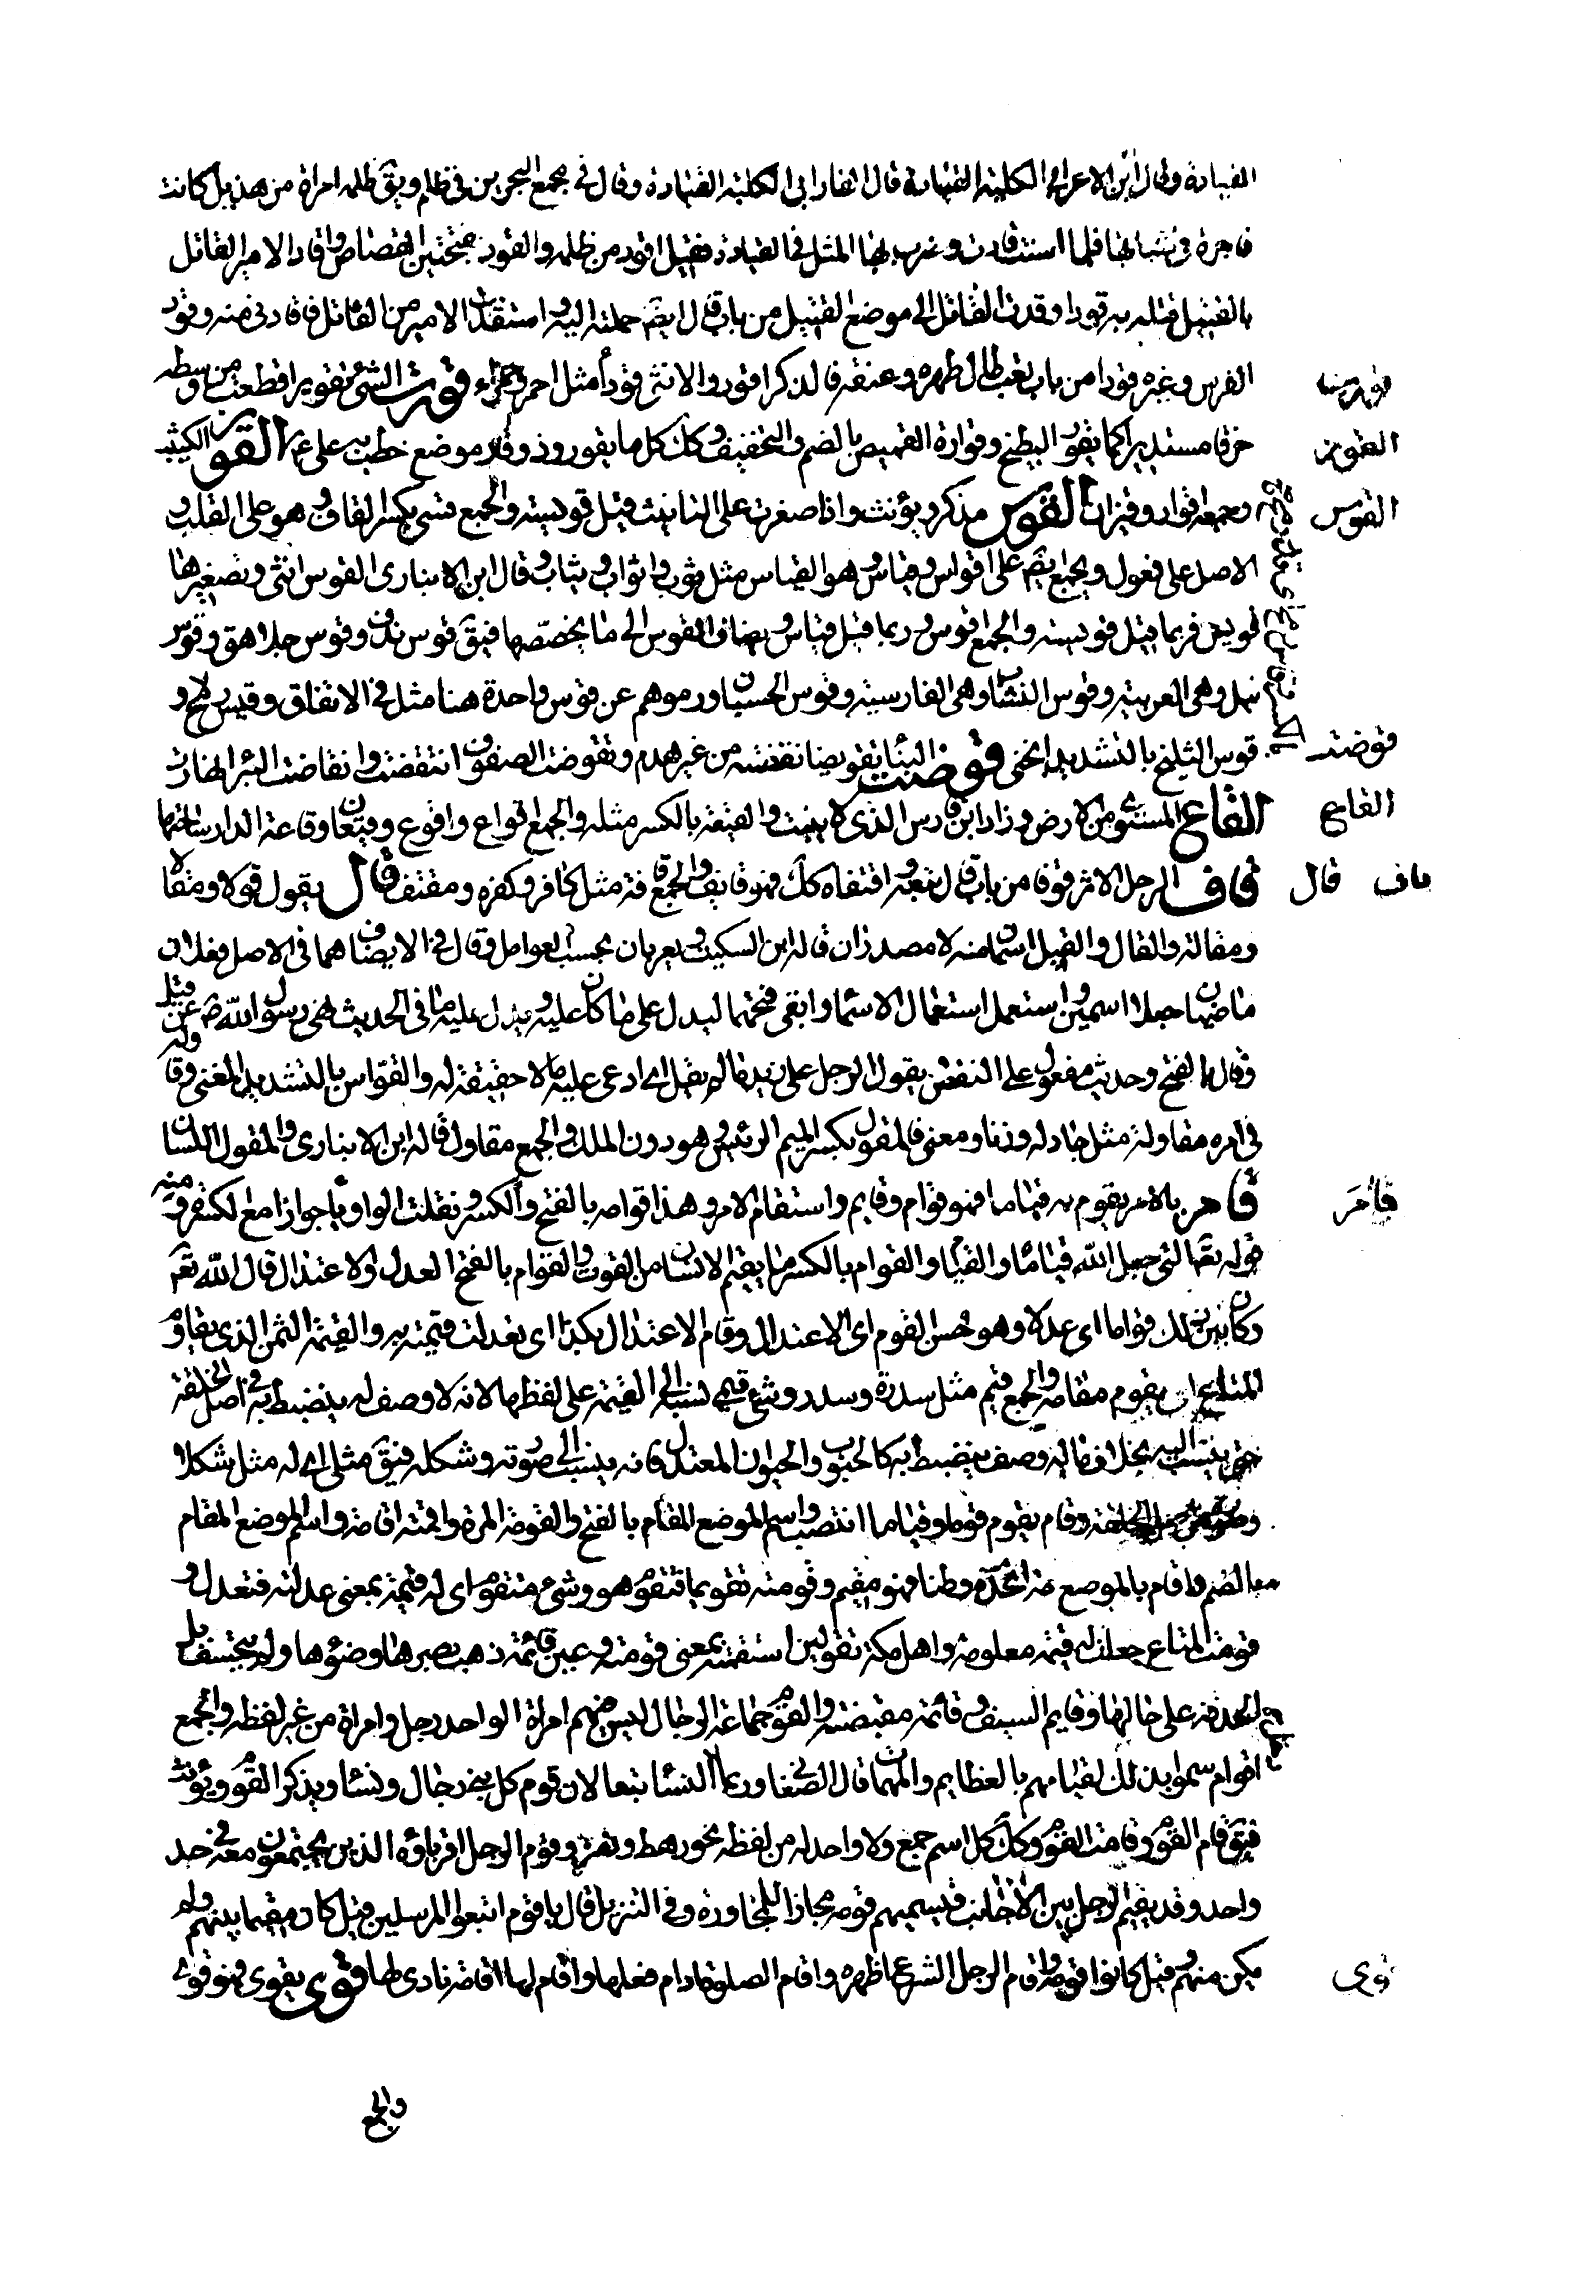 القيادة وقال ابن الاعرابي الكلتبة القيادة قال الفارابي الكلتبة القيادة وقال في مجمع البحرين في ظلم ويق ظلمه امراة من هذيل كانت
فاجرة في شبابها فلما استت قادت وضرب بها المثل في القيادة فقيل اقود من ظلمه والقود بفتحتين القصاص واقاد الامير القاتل
بالقتيل قتله به قودا وقدت القاتل الى موضع القتيل من باب قال ايضم حملته اليه واستقدت الامير من القاتل فاقادني منه وقود
الفرس وغيره قودا من باب تعب طال ظهره وعنقه فالذكر اقود والانثى قودأ مثل احمر وحمراء قورت الشئ تقويرا قطعت من وسطه
قورت
خرقا مستديرا كما يقور البطيخ وقوارة القميص بالضم والتخفيف وكك كل ما يقور وذوقار موضع خطب به علي ع القوز الكثيب
القوز
وجمعه اقواز وقيزان القوس مذكر ويؤنث واذا صغرت على التانيث قيل قويسة والجمع قسي بكسر القاف وهو على القلب و
القوس
الاصل على فعول ويجمع ايضم على اقواس وقياس وهو القياس مثل ثوب واثواب وثياب وقال ابن الانباري القوس انثى وتصغيرها
قويس فربما قيل قويسة والجمع اقوس وربما قيل قياس ويضاف القوس الى ما يخصصها فيق قوس ندف وقوس جلاهق وقوس
نبل وهي العربية وقوس النشاب وهي الفارسية وقوس الحسبان ورموهم عن قوس واحدة هنا مثل في الاتفاق وقيس رمح و
قوس الشيخ بالتشديد انحنى قوضت البنا تقويضا نقضته من غير هدم وتقوضت الصفوف انتقضت وانقاضت البئر انهارت
قوضت
القاع المستوي من الارض وزاد ابن فارس الذي لا ينبت والقيعة بالكسر مثله والجمع اقواع واقوع وقيعان وقاعة الدار ساحتها
القاع
قاف الرجل الاثر قوفا من باب قال تبعه واقتفاه كك فهو قايف والجمع قافة مثل كافر وكفره ومقتف قال يقول قولا ومقالا
قاف قال
ومقالة والقال والقيل اسمان منه لا مصدران قاله ابن السكيت ويعربان بحسب العوامل وقال في الايضاح هما في الاصل فعلان
ماضيان جعلا اسمين واستعمل استعمال الاسما وابقى فتحتهما ليدل على ما كانا عليه ويدل عليه ما في الحديث نهى رسول الله ص عن قيل
وقال بالفتح وحديث مفعول على النقض يقول الرجل على زيد قال لم يقل اي ادعى عليه ما لا حقيقة له والقوّاس بالتشديد المغني وقاوله
في امره مقاولة مثل جادله وزنا ومعنى فالمقول بكسر الميم الرئيس وهو دون الملك والجمع مقاول قاله ابن الانباري والمقول اللسان
قام بالامر يقوم به قياما فهو قوام وقايم واستقام الامر وهذا قوامه بالفتح والكسر ونقلت الواو يأ جوازا مع الكسر ومنه
قام
قوله تعالى التي جعل الله قياما والقيام والقوام بالكسر ما يقيم الانسان من القوت والقوام بالفتح العدل والاعتدال قال الله تعم
وكان بين ذلك قواما اي عدلا وهو حسن القوم اي الاعتدال وقام الاعتدال بكذا اي تعدلت قيمته به والقيمة الثمن الذي يقاوم
المتاع اي يقوم مقامه والجمع قيم مثل سدرة وسدر وشئ قيمي نسبة الى القيمة على لفظها لانه لا وصف له ينضبط به في اصل الخلقة
حتى ينتسب اليه بخلاف ما له وصف ينضبط به كالحبوب والحيوان المعتدل فانه ينسب الى صورته وشكله فيق مثلي اي له مثل شكلا و
الخلقة وقام يقوم قوما وقياما انتصب واسم الموضع المقام بالفتح والقومة المرة واقمته اقامة واسم الموضع المقام
بالضم واقام بالموضع اقامة اتخذه وطنا فهو مقيم وقومته تقويما فتقوم هو وشئ متقوم اي له قيمة بمعنى عدلته فتعدل و
قومت المتاع جعلت له قيمة معلومة واهل مكة تقولون استقمته بمعنى قومته وعين قائمة ذهب بصرها وضؤها ولم ينخسف بل
الحدقة على حالها وقايم السيف وقائمة مقبضته والقوم جماعة الرجال ليس فيهم امرأة الواحد رجل وامراة من غير لفظه والجمع
اقوام سموا بذلك لقيامهم بالعظايم والمهمات قال الصغاني وربما النسا تبعا لان قوم كل نبي رجال ونسا ويذكر القوم ويؤنث
فيق قام القوم وقامت القوم وكك كل اسم جمع ولا واحد له من لفظه نحو رهط ونفر وقوم الرجل اقرباؤه الذين يجتمعون معه في جد
واحد وقد يقيم الرجل بين الاجانب فيسميهم قومه مجازا للمجاورة وفي التنزيل قال يا قوم اتبعوا المرسلين قيل كان مقيما بينهم ولم
يكن منهم وقيل كانوا قومه واقام الرجل الشرع اظهره واقام الصلوة ادام فعلها واقام لها اقامة نادى لها قوي يقوى فهو قوي
قوي
والجمع